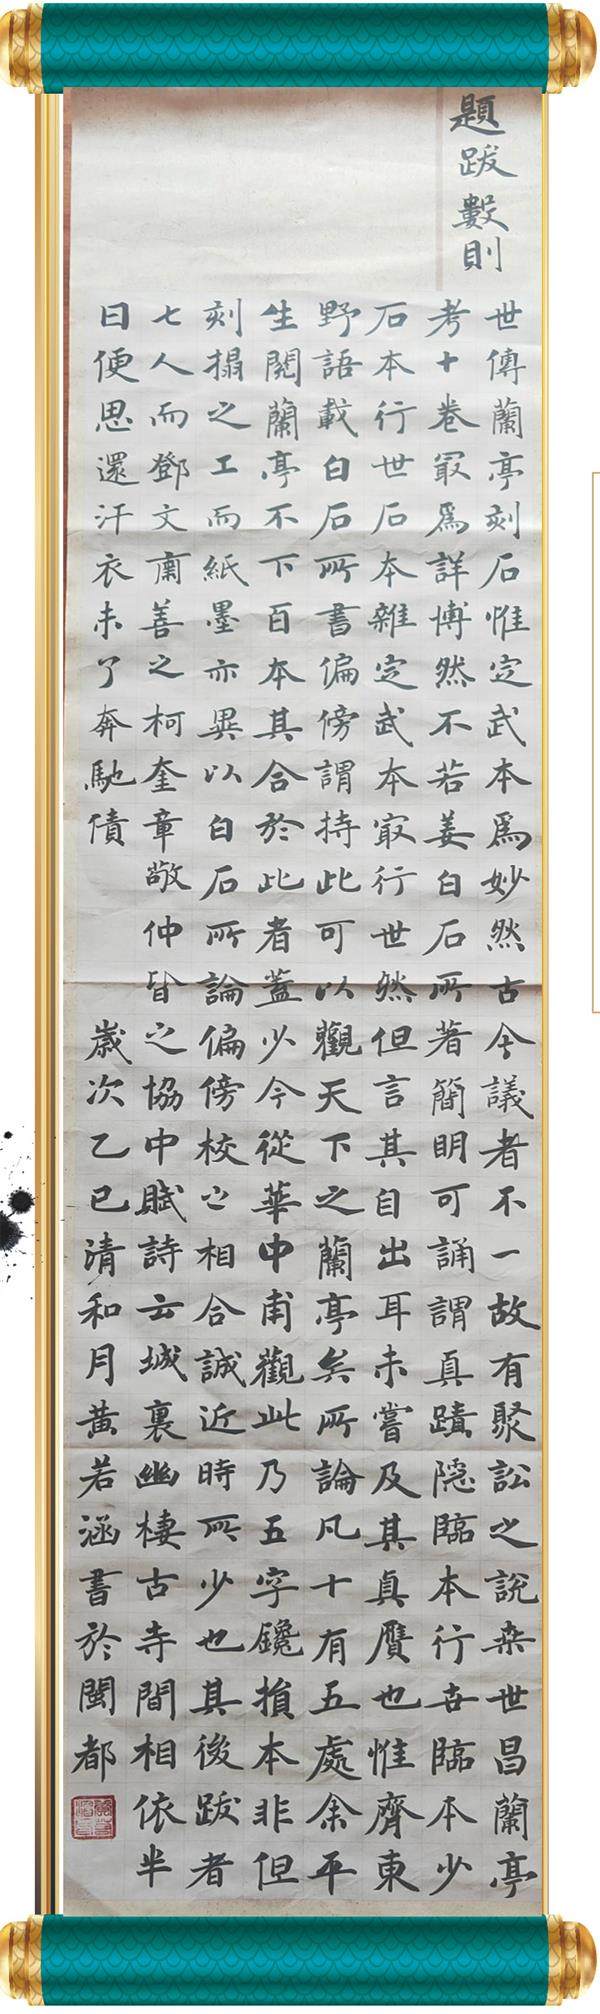 題跋數則
世傳蘭亭刻石惟定武本爲妙然古今議者不一故有聚訟之說桒世昌蘭亭
考十卷㝡爲詳博然不若姜白石所著簡明可誦謂真蹟隱臨本行世臨本少
石本行世石本雜定武本㝡行世然但言其自出耳未嘗及其真贋也惟齊東
野語載白石所書偏傍謂持此可以觀天下之蘭亭矣所論凡十有五處余平
生閱蘭亭不下百本其合於此者蓋少今從華中甫觀此乃五字鑱損本非但
刻搨之工而紙墨亦異以白石所論偏傍校之相合誠近時所少也其後跋者
七人而鄧文肅善之柯奎章敬仲皆之協中賦詩云城裏幽棲古寺間相依半
日便思還汗衣未了奔馳債
歲次乙巳清和月黃若涵書於閩都